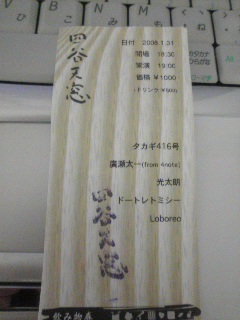 四谷天窓
日付 2008.1.31
開場 18:30
開演 19:00
価格 ¥1000
タカギ416号
廣瀬太一(from 4note)
光太朗
ドートレトミシー
Loboreo
四谷天窓
飲み物券